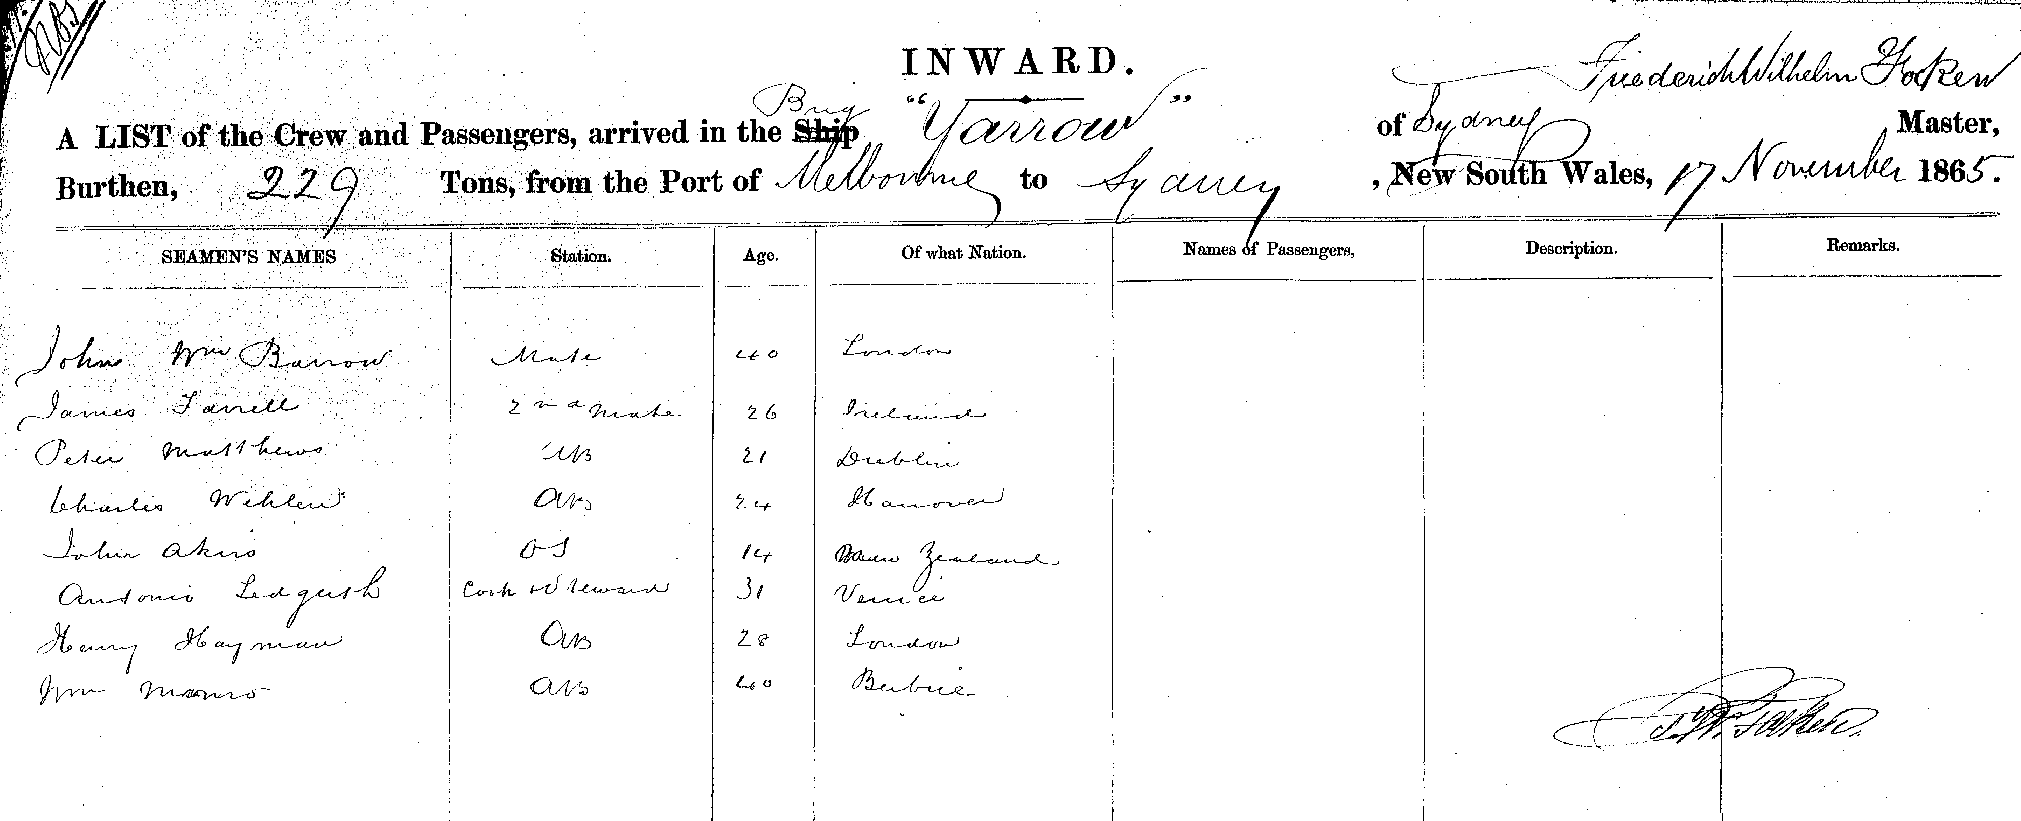 INWARD.
Friederich Wilhelm Focken
A LIST of the Crew and Passengers, arrived in the Ship Brig "Yarrow" of Sydney Master,
Burthen, 229 Tons, from the Port of Melbourne to Sydney, New South Wales, 17 November 1865.
SEAMEN'S NAMES Station. Age. Of what Nation. Names of Passengers, Description. Remarks.
John Wm Barrow Mate 40 London
James Farrell 2nd Mate 26 Ireland
Peter Matthews AB 21 Dublin
Charles Wehlen AB 24 Hanover
John Akins OS 14 New Zealand
Antonio Ledgush Cook & Steward 31 Venice
Henry Hayman AB 28 London
Wm Manro AB 40 Berbice
F. W. Focken.